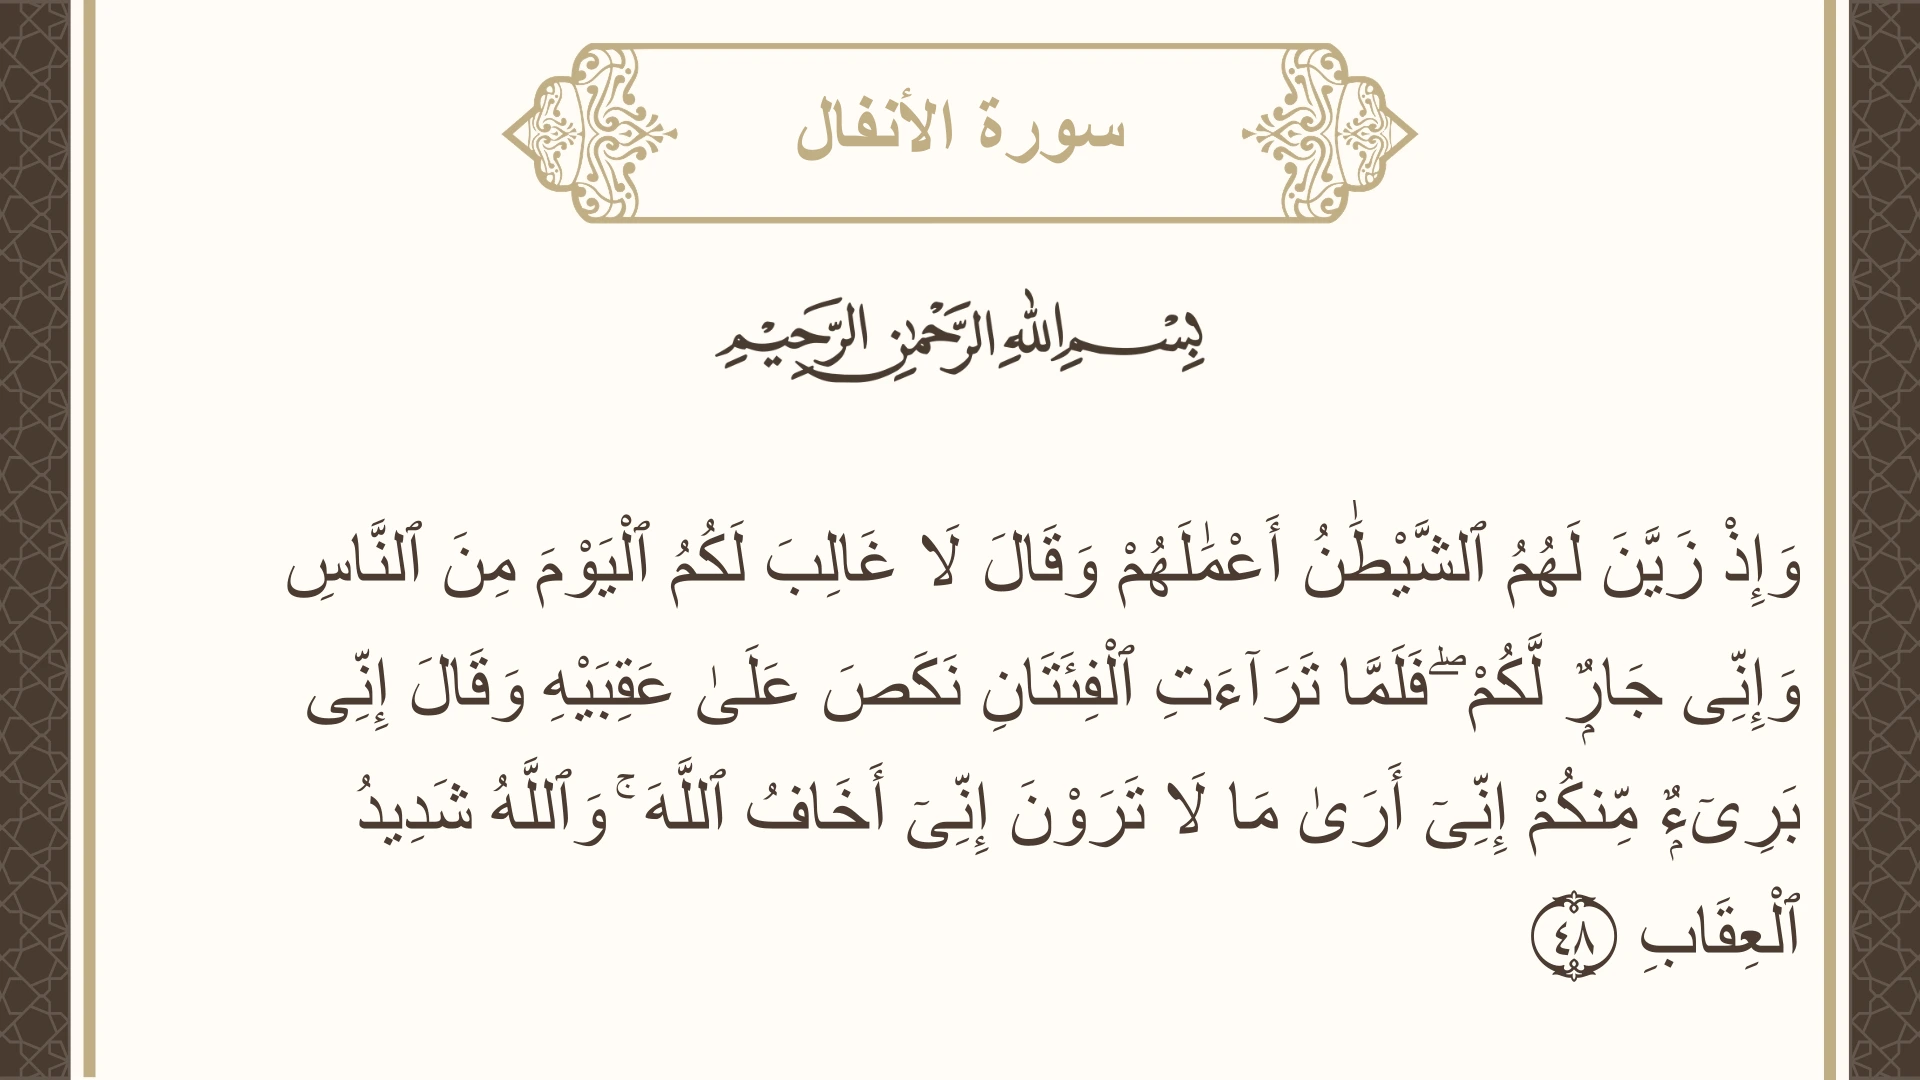 سورة الأنفال
بِسْمِ اللهِ الرَّحْمٰنِ الرَّحِيْمِ
وَإِذْ زَيَّنَ لَهُمُ ٱلشَّيْطَٰنُ أَعْمَٰلَهُمْ وَقَالَ لَا غَالِبَ لَكُمُ ٱلْيَوْمَ مِنَ ٱلنَّاسِ
وَإِنِّى جَارٌۭ لَّكُمْ ۖ فَلَمَّا تَرَآءَتِ ٱلْفِئَتَانِ نَكَصَ عَلَىٰ عَقِبَيْهِ وَقَالَ إِنِّى
بَرِىٓءٌۭ مِّنكُمْ إِنِّىٓ أَرَىٰ مَا لَا تَرَوْنَ إِنِّىٓ أَخَافُ ٱللَّهَ ۚ وَٱللَّهُ شَدِيدُ
ٱلْعِقَابِ ٤٨